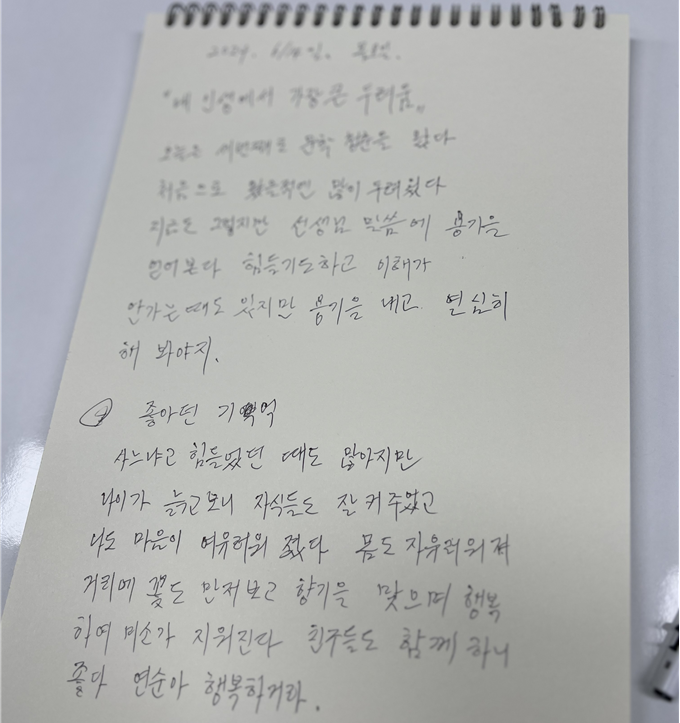 2024. 6/14일. 목요일.
"내 인생에서 가장 큰 두려움"
오늘은 세번째로 문학 왔다
처음으로 많이 두려웠다
지금도 그렇지만 선생님 말씀에 용기을
얻어본다 힘들기도하고 이해가
안가는때도 있지만 용기을 내고 연심히
해 봐야지.
좋아던 기억
사느냐고 힘들었던 때도 많아지만
나이가 늙고보니 자식들도 잘 커 주었고
나도 마음이 여유러워 졌다 몸도 자유러워져
거리에 꽃도 만저보고 향기을 맞으며 행복
하여 미소가 지워진다 친구들도 함께 하니
좋다 연순아 행복하거라.